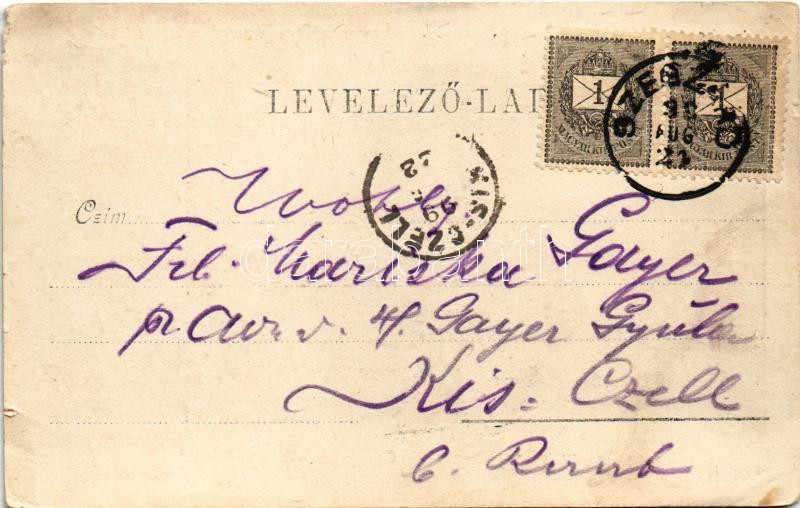 LEVELEZŐ-LAP
1
MAGYAR KIR. POSTA
1
MAGYAR KIR. POSTA
SZEGZÁRD
99
AUG
21
KIS-CZELL
99
22
Czím
Wohlg.
Frl. Mariska Gayer
pr Adr. v. H. Gayer Gyula
Kis-Czell
darabanth